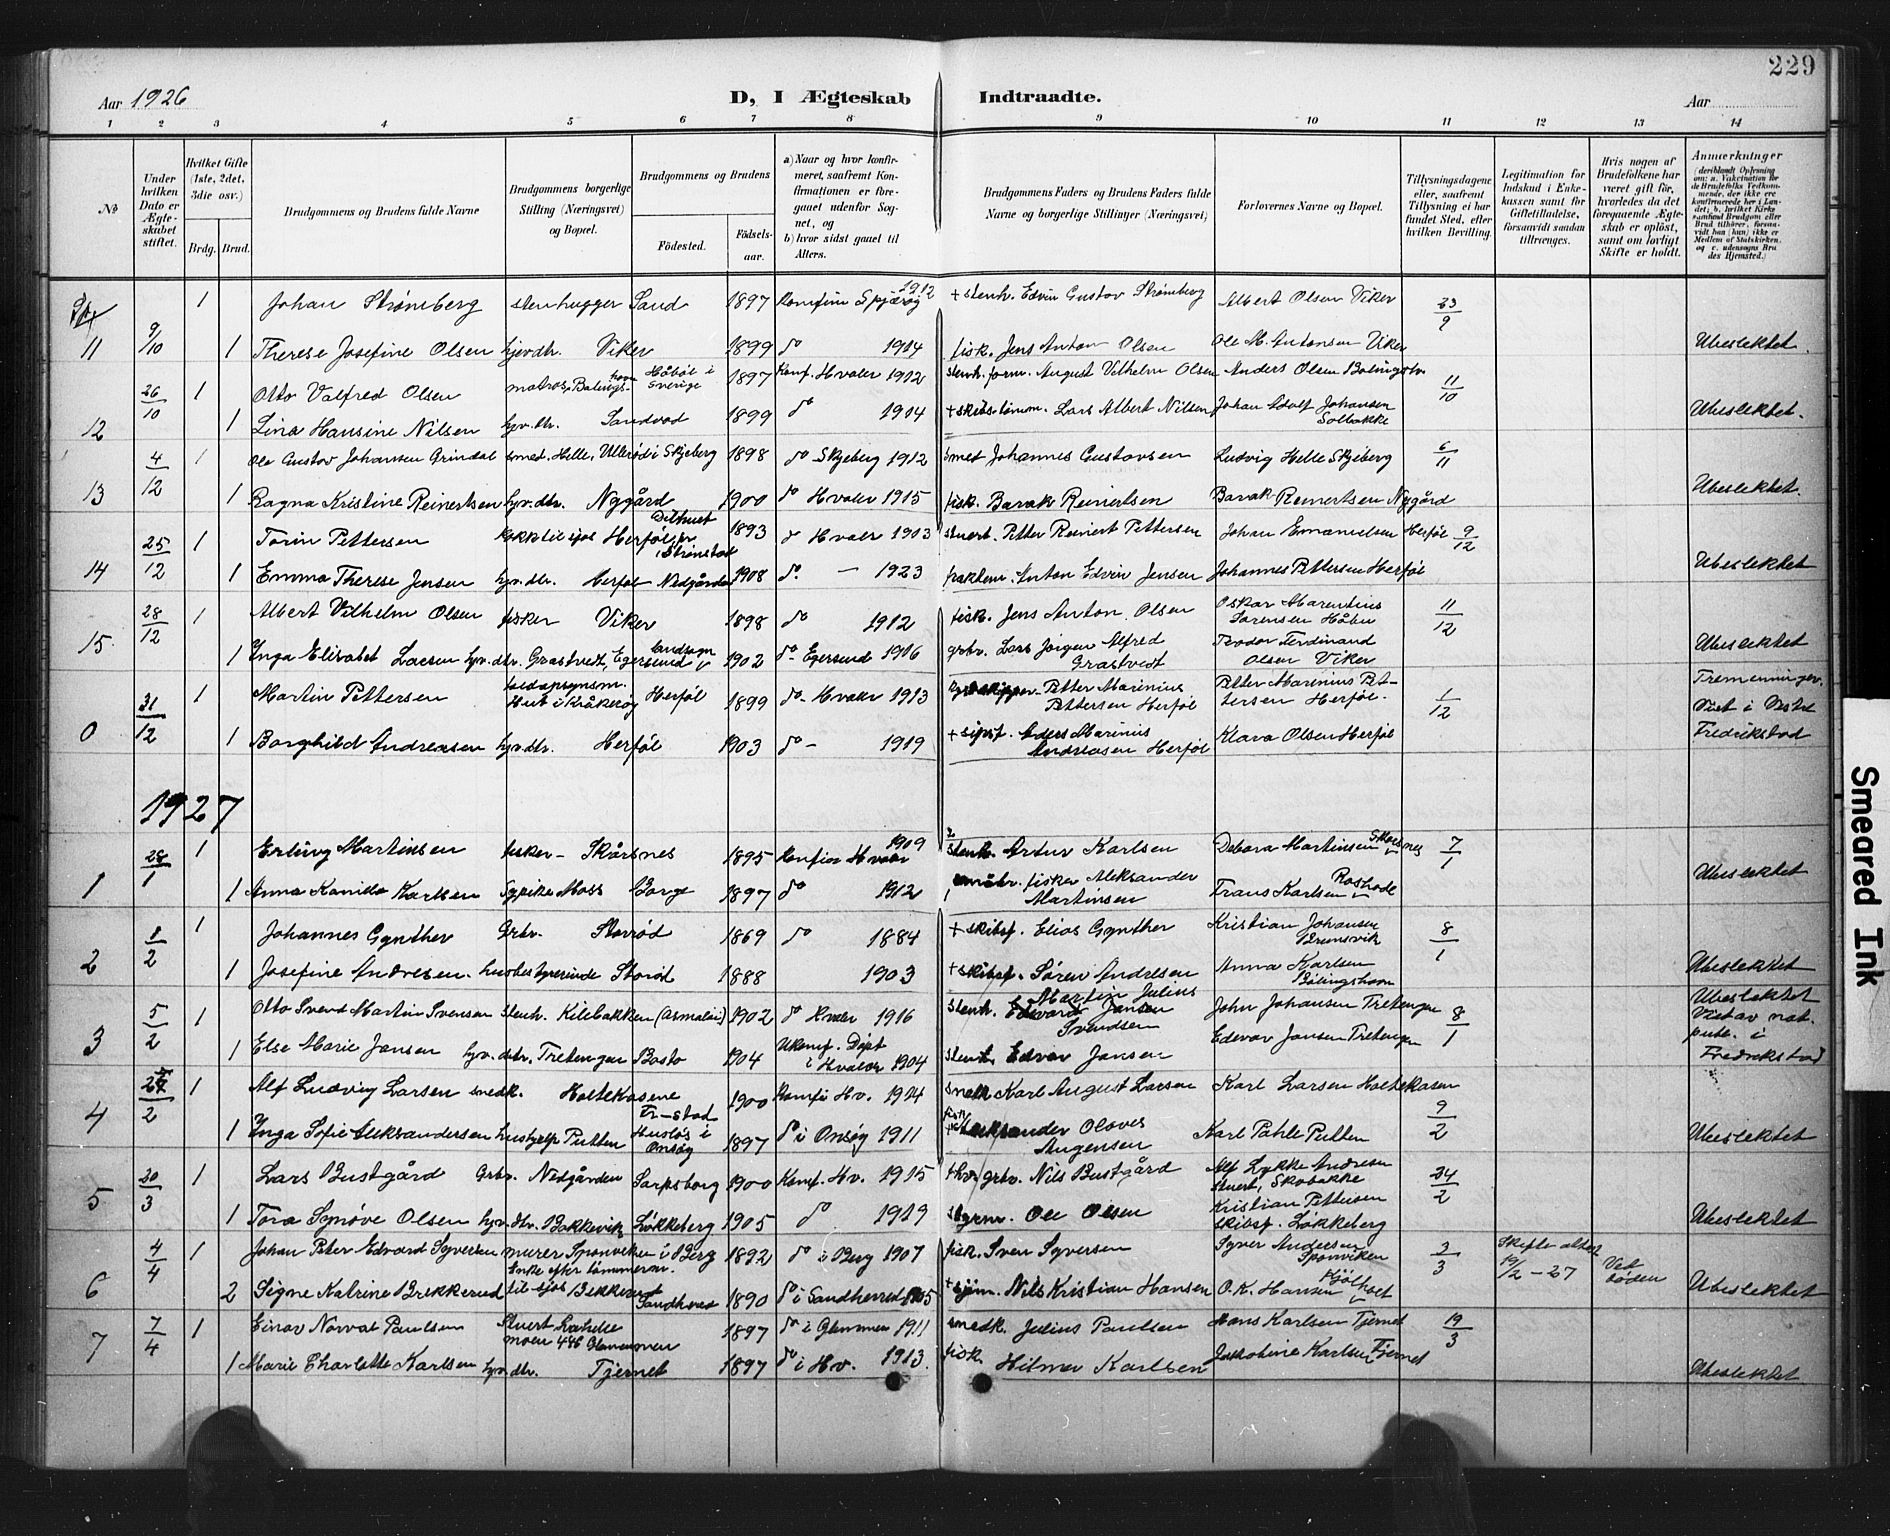 229
Aar 1926
D, I Ægteskab Indtraadte.
Aar
1 2 3 4 5 6 7 8 9 10 11 12 13 14
No
Under hvilken Dato er Ægteskabet stiftet.
Hvilket Gifte (1ste, 2det, 3die osv.)
Brdg. Brud.
Brudgommens og Brudens fulde Navne
Brudgommens borgerlige Stilling (Næringsvei) og Bopæl.
Brudgommens og Brudens
Fødested.
Fødselsaar.
a) Naar og hvor konfirmeret, saafremt Konfirmationen er foregaaet udenfor Sognet, og
b) hvor sidst gaaet til Alters.
Brudgommens Faders og Brudens Faders fulde Navne og borgerlige Stillinger (Næringsvei)
Forlovernes Navne og Bopæl.
Tillysningsdagene eller, saafremt Tillysning ei har fundet Sted, efter hvilken Bevilling.
Legitimation for Indskud i Enkekassen samt for Giftetilladelse, forsaavidt saadan tiltrænges.
Hvis nogen af Brudefolkene har været gift før, hvorledes da det foregaaende Ægteskab er opløst, samt om lovligt Skifte er holdt.
Anmærkninger (deriblandt Oplysning om: a. Vakcination for de Brudefolks Vedkommende, der ikke ere konfirmerede her i Landet; b. hvilket Kirkesamfund Brudgom eller Brud tilhører, forsaavidt han (hun) ikke er Medlem af Statskirken, og c. udensogns Brudes Hjemsted.)
1 Johan Strømberg stenhugger Sand 1897 Konfirm Spjærøy 1912 + stenh. Edvin Gustav Strømberg Albert Olsen Viker 23/9
11 9/10 1 Therese Josefine Olsen hjv.dtr. Viker 1899 do 1914 fisk. Jens Anton Olsen Ole M. Antonsen Viker Ubeslektet.
26/10 1 Otto Valfred Olsen matros, Bølingshavn Håbøl i Sverige 1897 Konf. Hvaler 1912 stenh. form. August Vilhelm Olsen Anders Olsen Bølingshv. 11/10
12 1 Lina Hansine Nilsen hjv. dtr. Sandvod 1899 do 1904 + skibstømm. Lars Albert Nilsen Johan Adolf Johansen Solbakke Ubeslektet.
4/12 1 Ole Gustav Johansen Grindal smed. Helle, Ullerød i Skjeberg 1898 do Skjeberg 1912 smed Johannes Gustavsen Ludvig Helle Skjeberg 6/11
13 1 Ragna Kristine Reinertsen hjv.dtr. Nygård 1900 do Hvaler 1915 fisk. Barak Reinertsen Barak Reinertsen Nygård Ubeslektet.
25/12 1 Torin Pettersen kokk til sjøs Herføl 1893 do Hvaler 1903 stuert. Petter Reinert Pettersen Johan Emanuelsen Herføl 9/12
14 1 Emma Therese Jensen hjv. dtr. Herføl Nedgården 1908 do. — 1923 Anton Edvin Jensen Johannes Pettersen Herføl Ubeslektet
28/12 1 Albert Vilhelm Olsen fisker Viker 1898 do 1912 fisk. Jens Anton Olsen Oskar Marentius Sørensen Håbu 11/12
15 1 Inga Elisabet Larsen hjv. dtr. Grastveit, Egersund landsogn 1902 do- Egersund 1916 grbr. Lars Jørgen Alfred Grastveit Teodor Ferdinand Olsen Viker Ubeslektet
31/12 1 Martin Pettersen Hut i Kråkerøy Herføl 1899 do- Hvaler 1913 Petter Marinius Pettersen Herføl Petter Marinius Pettersen Herføl. 1/12 Tremenninger. Viet i Vestre Fredrikstad
0 1 Borghild Andreassen hjv.dtr. Herføl 1903 do- 1919 Marinius Andreasen Herføl Klara Olsen Herføl
1927
28/1 1 Erling Martinsen fisker - Skårsnes 1895 Konfirm Hvaler 1909 stenh. Artur Karlsen Debora Martinsen Skårsnes 7/1
1 1 Anna Kamilla Karlsen Moss Borge 1897 do 1912 fisker Aleksander Martinsen Frans Karlsen Ubeslektet
1/2 1 Johannes Gynther Grbr. Storrød 1869 do 1884 + skibsf. Elias Gynther Kristian Johansen Brunsvik 8/1
2 1 Josefine Andresen. husbestyrerinde Storød 1888 1903 + skibsf. Søren Andresen Anna Karlsen Bølingshavn Ubeslektet
5/2 1 Otto Svend Martin Svensen stenh. Kilebakken (Asmaløi) 1902 do Hvaler 1916 stenh. Martin Julius Svendsen John Johansen Tretengen 8/1 Ubeslektet Viet av not. publ. i Fredrikstad
3 1 Else Marie Jansen hjv. dtr. Tretengen Basto 1904 Ukonf. Døpt i Hvaler 1904 stenh. Edvar Jansen Edevar Jansen Tretengen
2/2 1 Alf Ludvig Larsen snedk. Holtekasene Fr-stad 1900 Konfi Hv. 1914 snedk Karl August Larsen Karl Larsen Holtekasen 9/2
4 1 Inga Sofie Aleksandersen hushjelp Putten Husløs i Onsøy 1897 do i Onsøy 1911 Aleksander Olaves Augensen Karl Pahle Putten Ubeslektet
20/3 1 Lars Bustgård Grbr. Nedgården Sarpsborg 1900 Konf. Hv. 1915 grbr. Nils Bustgård Alf Lykke Andresen stuert, Skobakke 24/2
5 1 Tora Synøve Olsen hjv. dtr. Bakkevik Løkkeberg 1905 do 1919 styrm. Ole Olsen Kristian Pettersen skibsf. Løkkeberg Ubeslektet
4/4 1 Johan Peter Edvard Syversen murer Sponviken i Berg 1892 do i Berg 1907 fisk. Sven Syversen Syver Andersen Sponviken 3/3 Skifte attest 19/2 - 27 Ved døden
6 2 Signe Katrine Brekkerud Enke efter tømmerm. til sjøs Bekkerud Sandherred 1890 do i Sandherred 1905 + sjøm. Nils Kristian Hansen O.K. Hansen Kjølholt Ubeslektet
7/4 1 Einar Norval Paulsen Stuert moen 446 Glemmen 1897 do i Glemmen 1911 snedk. Julius Paulsen Hans Karlsen Tjernet 19/3
7 1 Marie Charlotte Karlsen hjv. dtr. Tjernet 1897 do i Hv. 1913. fisk. Hilmar Karlsen Jakobine Karlsen Tjernet Ubeslektet
Smeared Ink